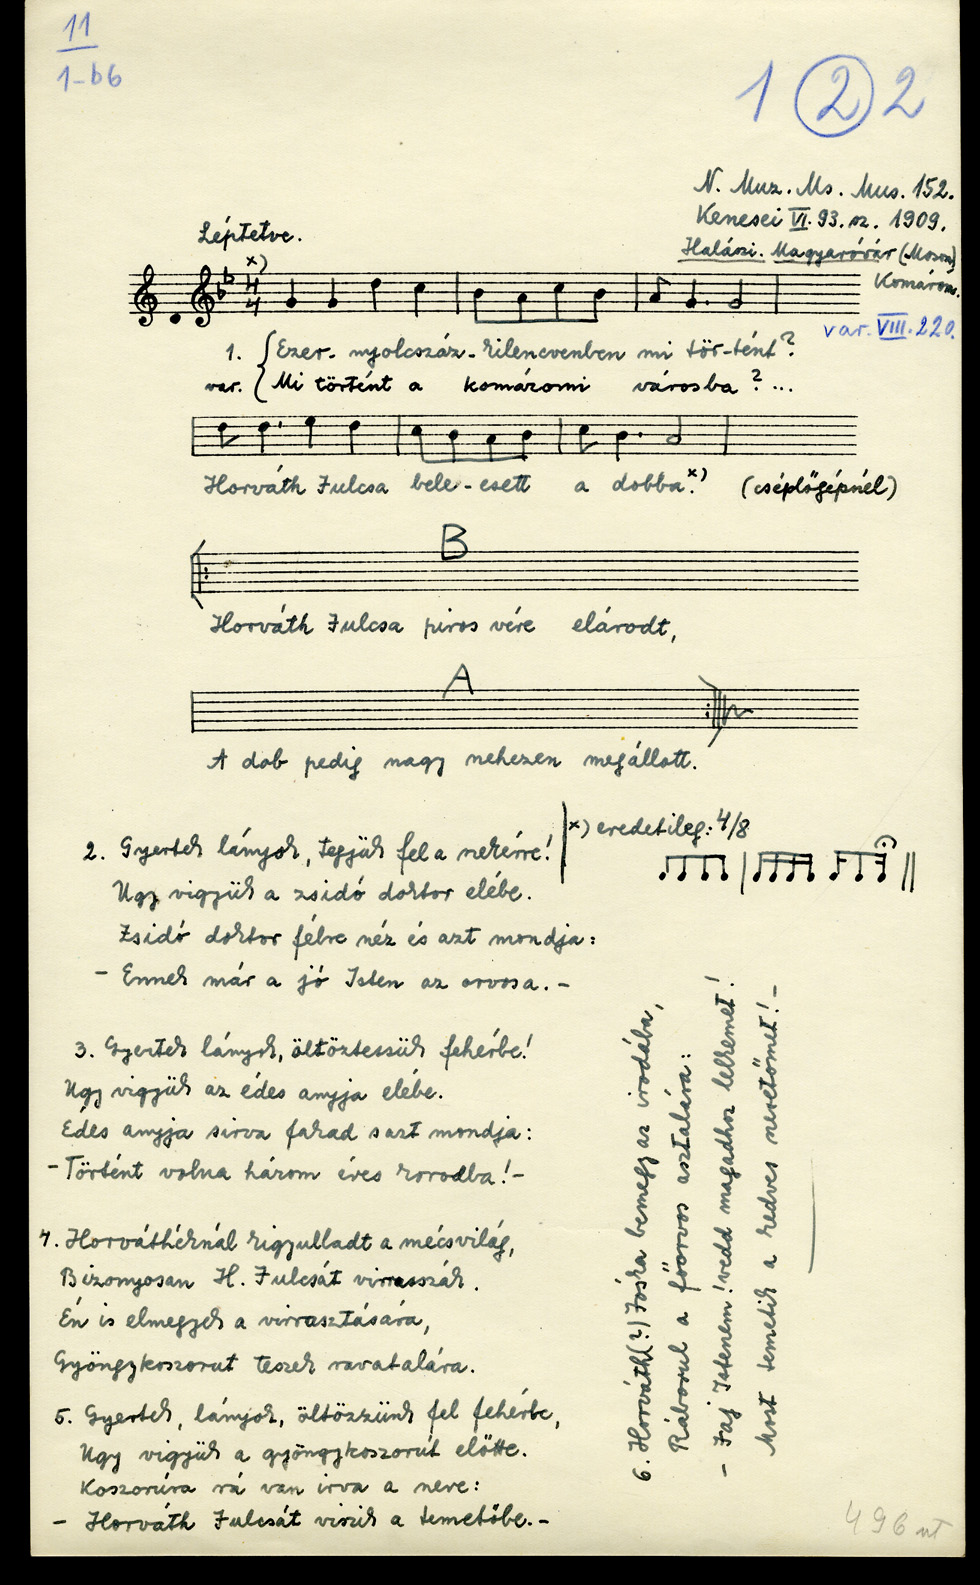 11
1-b6
1 2 2
N. Muz. Ms. Mus. 152.
Kenesei VI. 93. sz. 1909.
Halászi. Magyaróvár (Moson)
Komárom.
var. VIII. 220.
Léptetve.
x)
4
4
1. Ezer- nyolcszáz- kilencvenben mi tör-tént?
var. Mi történt a komáromi városba? ...
Horváth Julcsa bele-esett a dobba. x) (cséplőgépnél)
B
Horváth Julcsa piros vére elárodt,
A
A dob pedig nagy nehezen megállott.
x) eredetileg: 4/8
2. Gyertek lányok, tegyük fel a szekérre!
Ugy vigyük a zsidó doktor elébe.
Zsidó doktor félre néz és azt mondja:
- Ennek már a jó Isten az orvosa. -
3. Gyertek lányok, öltöztessük fehérbe!
Ugy vigyük az édes anyja elébe.
Édes anyja sirva fakad s azt mondja:
- Történt volna három éves korodba! -
4. Horváthéknál kigyulladt a mécsvilág,
Bizonyosan H. Julcsát virrasszák.
Én is elmegyek a virrasztására,
Gyöngykoszorut teszek ravatalára.
5. Gyertek, lányok, öltözzünk fel fehérbe,
Ugy vigyük a gyöngykoszorút előtte.
Koszorúra rá van irva a neve:
- Horváth Julcsát viszik a temetőbe. -
6. Horváth(?) Jóska bemegy az irodába,
Ráborul a főorvos asztalára:
- Jaj Istenem! vedd magadhoz lelkemet!
Most temetik a kedves szeretőmet! -
496 nt